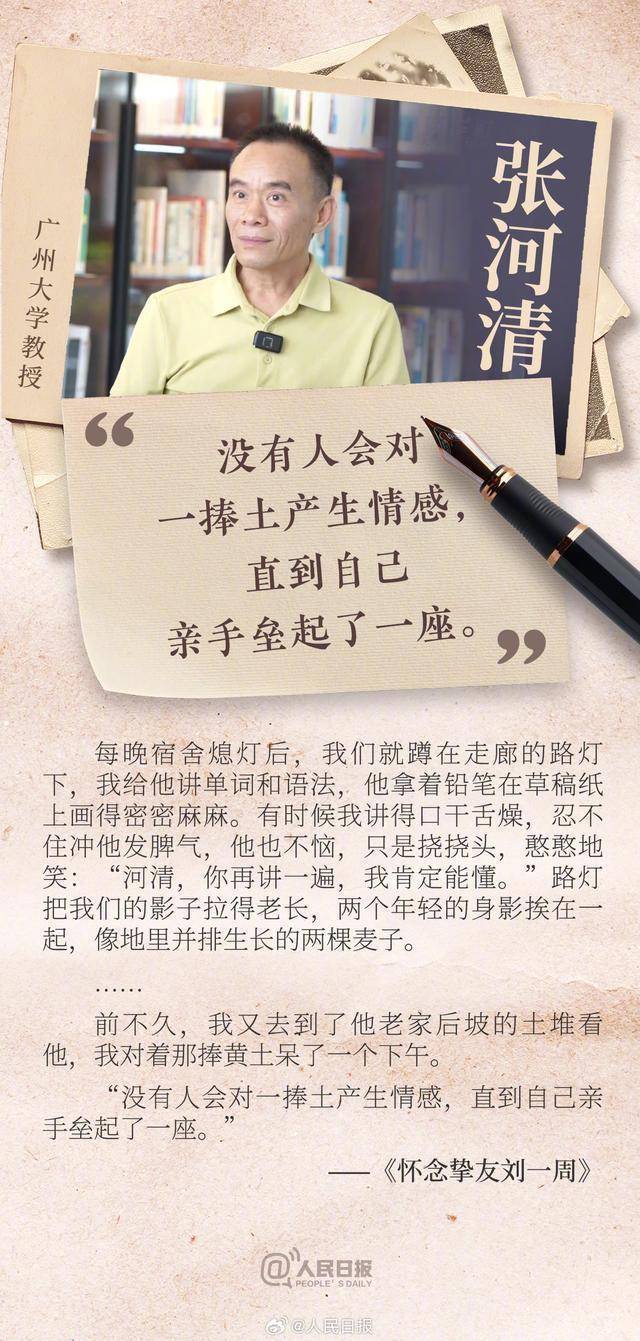 广州大学教授
张河清
“
没有人会对
一捧土产生情感，
直到自己
亲手垒起了一座。
”
每晚宿舍熄灯后，我们就蹲在走廊的路灯
下，我给他讲单词和语法，他拿着铅笔在草稿纸
上画得密密麻麻。有时候我讲得口干舌燥，忍不
住冲他发脾气，他也不恼，只是挠挠头，憨憨地
笑：“河清，你再讲一遍，我肯定能懂。”路灯
把我们的影子拉得老长，两个年轻的身影挨在一
起，像地里并排生长的两棵麦子。
……
前不久，我又去到了他老家后坡的土堆看
他，我对着那捧黄土呆了一个下午。
“没有人会对一捧土产生情感，直到自己亲
手垒起了一座。”
——《怀念挚友刘一周》
@人民日报
PEOPLE'S DAILY
@人民日报